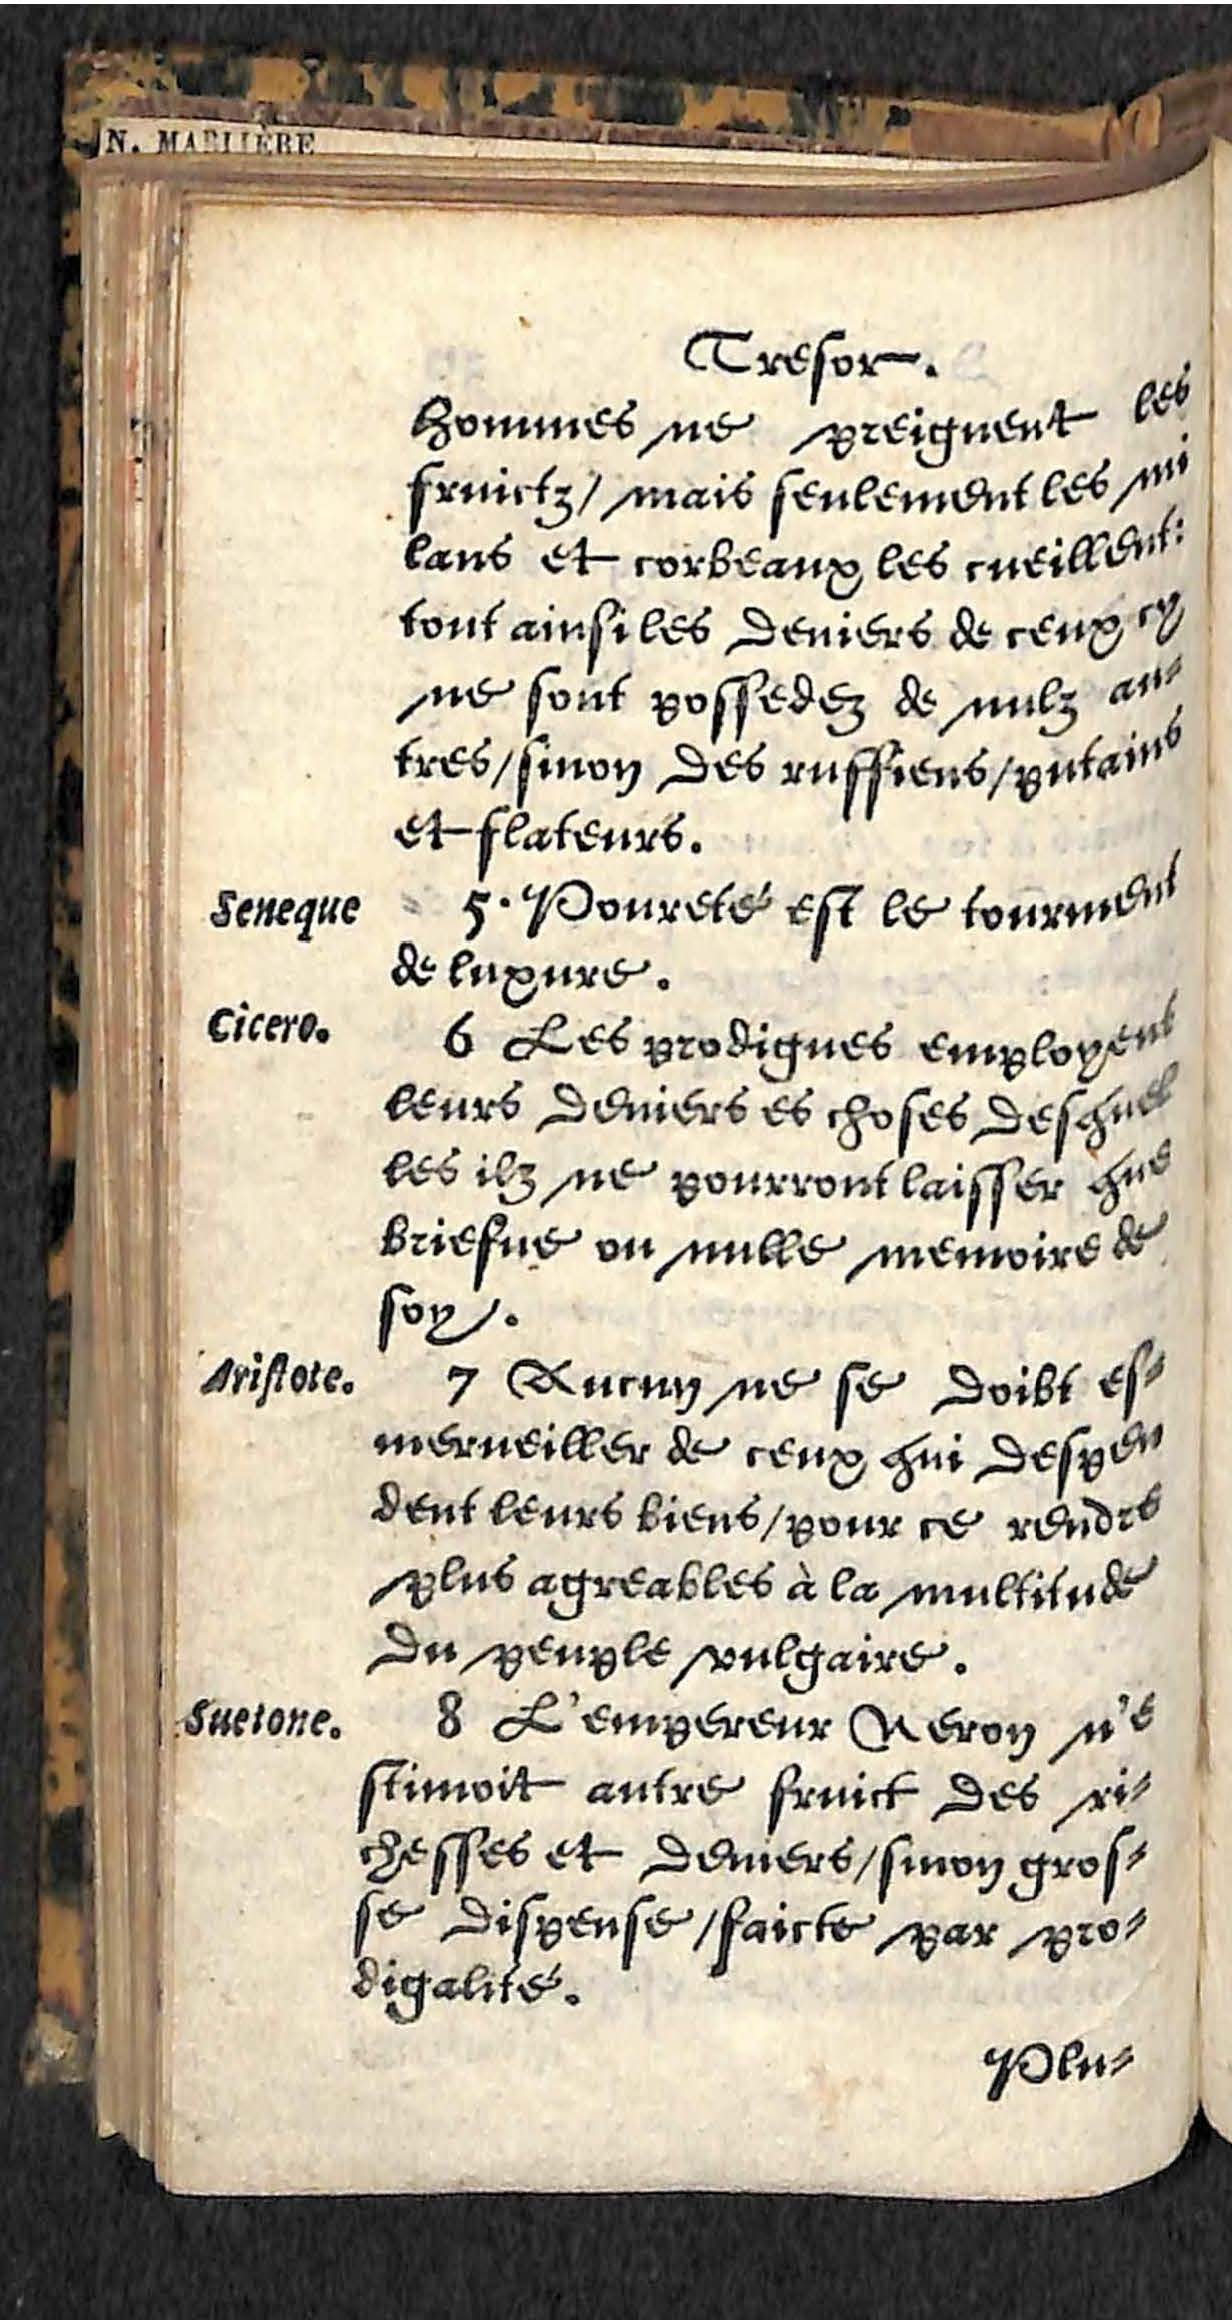 N. MARLIÈRE
Tresor.
hommes ne preignent les
fruictz/ mais seulement les mi
lans et corbeaux les cueillent:
tout ainsi les deniers de ceux cy
ne sont possedez de nulz au-
tres/sinon des ruffiens/putains
et flateurs.
Seneque 5. Poureté est le tourment
de luxure.
Cicero. 6 Les prodigues employent
leurs deniers es choses desquel
les ilz ne pourront laisser que
briefue ou nulle memoire de
soy.
Aristote. 7 Aucun ne se doibt es-
merueiller de ceux qui despen
dent leurs biens/pour ce rendre
plus agreables à la multitude
du peuple vulgaire.
Suetone. 8 L'empereur Neron n'e
stimoit autre fruict des ri-
chesses et deniers/sinon gros-
se dispense/faicte par pro-
digalité.
Plu-